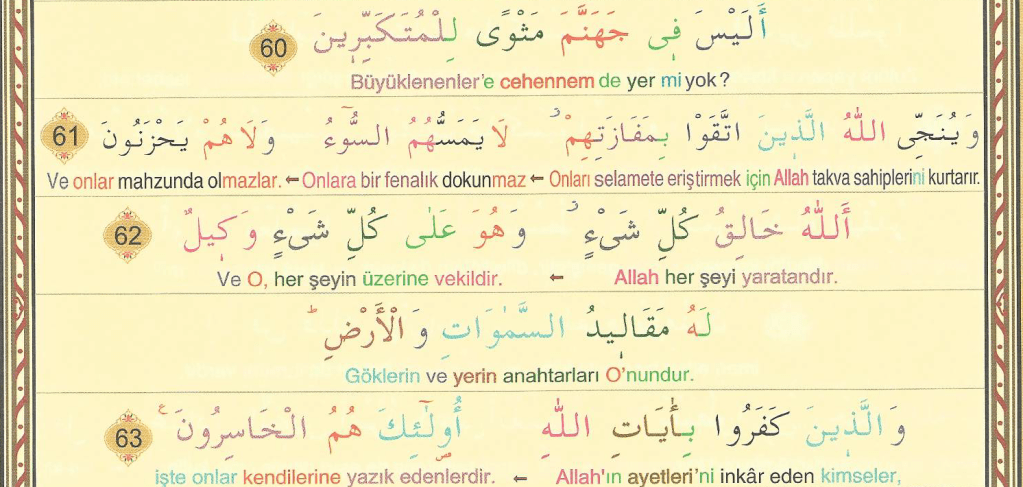 أَلَيْسَ فِى جَهَنَّمَ مَثْوًى لِلْمُتَكَبِّرِينَ 60
Büyüklenenler'e cehennem de yer mi yok?
وَ يُنَجِّى اللّٰهُ الَّذِينَ اتَّقَوْا بِمَفَازَتِهِمْ ز لَا يَمَسُّهُمُ السُّوٓءُ وَلَا هُمْ يَحْزَنُونَ 61
Ve onlar mahzunda olmazlar. ← Onlara bir fenalık dokunmaz ← Onları selamete eriştirmek için Allah takva sahiplerini kurtarır.
أَللّٰهُ خَالِقُ كُلِّ شَىْءٍ ز وَ هُوَ عَلٰى كُلِّ شَىْءٍ وَكِيلٌ 62
Ve O, her şeyin üzerine vekildir. ← Allah her şeyi yaratandır.
لَهُ مَقَالِيدُ السَّمٰوَاتِ وَ الْأَرْضِ ط
Göklerin ve yerin anahtarları O'nundur.
وَ الَّذِينَ كَفَرُوا بِأَيَاتِ اللّٰهِ أُولٰٓئِكَ هُمُ الْخَاسِرُونَ ع 63
işte onlar kendilerine yazık edenlerdir. ← Allah'ın ayetleri'ni inkâr eden kimseler,